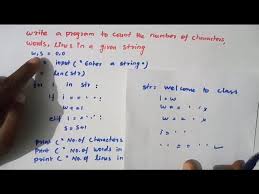 write a program to count the number of characters,
words, lines in a given string
w, s = 0,0
input ("Enter a string")
len(str)
for i in str:
if i == ' ':
w = w+1
elif i == '.':
s = s+1
Print ("No. of Characters
Print ("No. of words in
Print ("No. of lines in
str: welcome to class
i = w